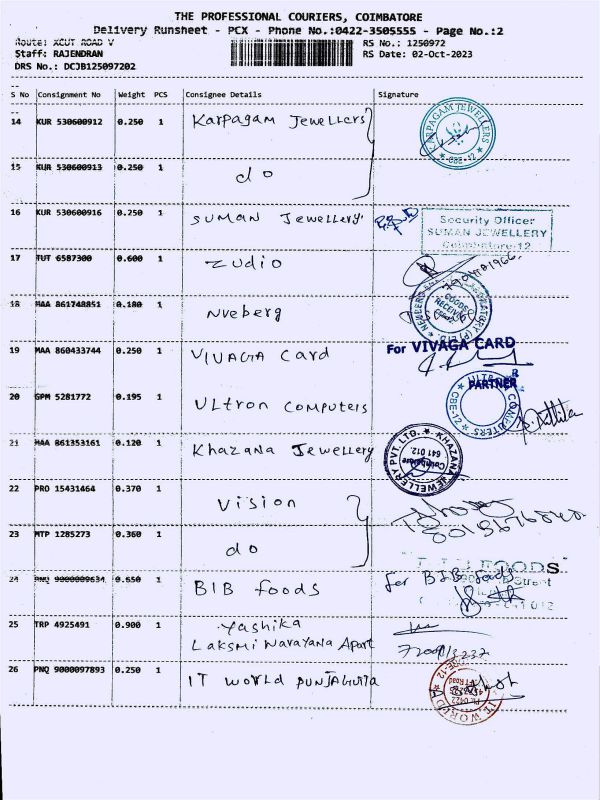 THE PROFESSIONAL COURIERS, COIMBATORE
Delivery Runsheet - PCX - Phone No.:0422-3505555 - Page No.:2
Route: XCUT ROAD V RS No.: 1250972
Staff: RAJENDRAN RS Date: 02-Oct-2023
DRS No.: DCJB125097202
S No Consignment No Weight PCS Consignee Details Signature
14 KUR 530600912 0.250 1 Karpagam Jewellers KARPAGAM JEWELLERS CBE-12
15 KUR 530600913 0.250 1 do
16 KUR 530600916 0.250 1 SUMAN Jewellery Security Officer
SUMAN JEWELLERY
Coimbatore-12
17 TUT 6587300 0.600 1 Zudio
18 MAA 861748851 0.180 1 Nveberg GOODS RECEIVED
19 MAA 860433744 0.250 1 VIVAGA Card For VIVAGA CARD
PARTNER
20 GPM 5281772 0.195 1 ULtron Computers COMPUTERS CBE-12
21 MAA 861353161 0.120 1 Khazana Jewellery KHAZANA JEWELLERY PVT. LTD. Coimbatore 641 012.
22 PRO 15431464 0.370 1 Vision
23 MTP 1285273 0.360 1 do
24 PNQ 9000009634 0.650 1 BIB foods for BIB foods
FOODS
Street
25 TRP 4925491 0.900 1 Yashika
Laksmi Narayana Apart
26 PNQ 9000097893 0.250 1 IT World PUNJAGUTTA IT WORLD CBE-12